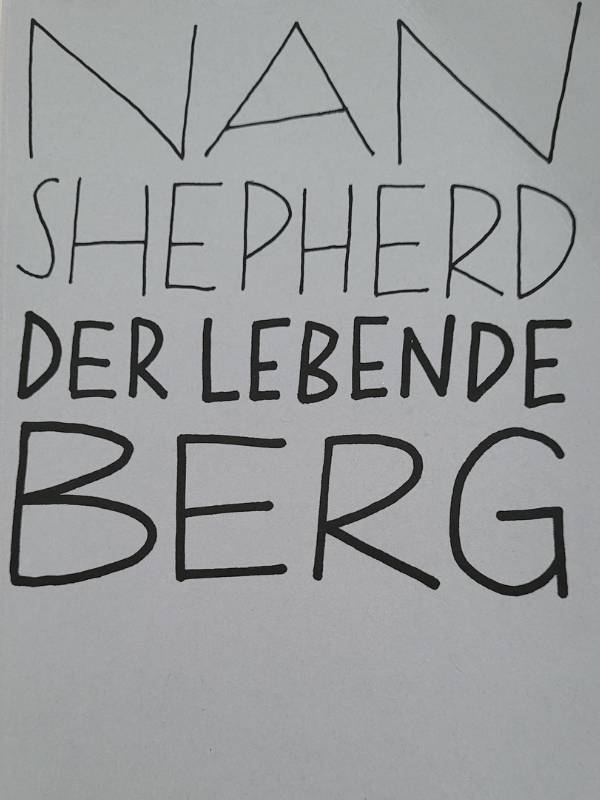 NAN
SHEPHERD
DER LEBENDE
BERG